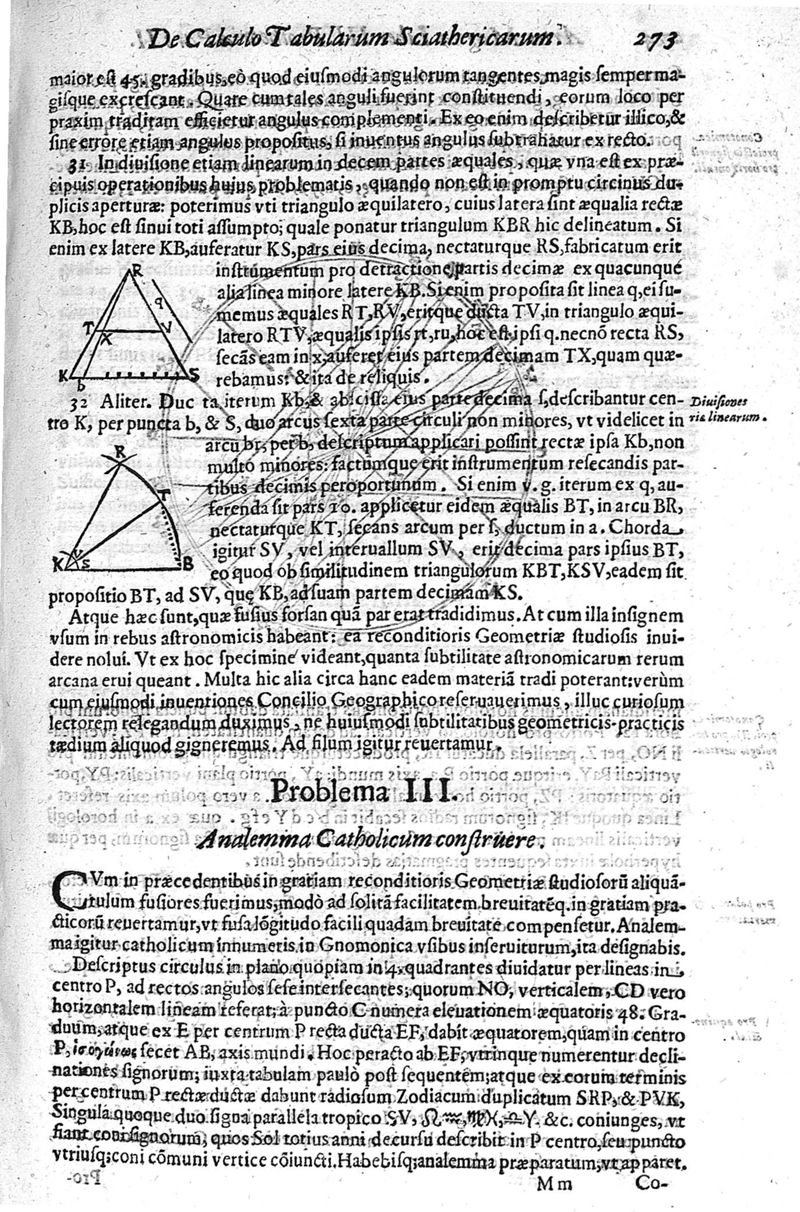 De Calculo Tabularum Sciathericarum. 273
maior est 45. gradibus, eò quod eiusmodi angulorum tangentes, magis semper ma-
gisque excrescant. Quare cum tales anguli fuerint constituendi, eorum loco per
praxim traditam efficietur angulus complementi. Ex eo enim describetur illico, &
sine errore etiam angulus propositus, si inuentus angulus subtrahatur ex recto.
31 In diuisione etiam linearum in decem partes æquales, quæ vna est ex præ-
cipuis operationibus hujus problematis, quando non est in promptu circinus du-
plicis aperturæ: poterimus vti triangulo æquilatero, cuius latera sint æqualia rectæ
KB, hoc est sinui toti assumpto; quale ponatur triangulum KBR hic delineatum. Si
enim ex latere KB, auferatur KS, pars eius decima, nectaturque RS, fabricatum erit
instrumentum pro detractione partis decimæ ex quacunque
alia linea minore latere KB. Si enim proposita sit linea q, ei su-
memus æquales RT, RV, eritque ducta TV, in triangulo æqui-
latero RTV, æqualis ipsis rt, ru, hoc est ipsi q. necnõ recta RS,
secãs eam in x, auferet eius partem decimam TX, quam quæ-
rebamus: & ita de reliquis.
R
q
T
V
X
K
b
S
32 Aliter. Duc ta iterum Kb, & abscissa eius parte decima s, describantur cen-
tro K, per puncta b, & S, duo arcus sexta parte circuli non minores, vt videlicet in
Diuisiones
riæ linearum.
arcu br, per b, descriptum applicari possint rectæ ipsa Kb, non
multò minores: factumque erit instrumentum resecandis par-
tibus decimis peroportunum. Si enim v. g. iterum ex q, au-
ferenda sit pars 10. applicetur eidem æqualis BT, in arcu BR,
nectaturque KT, secans arcum per s, ductum in a. Chorda
igitur SV, vel interuallum SV, erit decima pars ipsius BT,
eo quod ob similitudinem triangulorum KBT, KSV, eadem sit
R
T
V
K
S
B
propositio BT, ad SV, quę KB, ad suam partem decimam KS.
Atque hæc sunt, quæ fusius forsan quã par erat tradidimus. At cum illa insignem
vsum in rebus astronomicis habeant: ea reconditioris Geometriæ studiosis inui-
dere nolui. Vt ex hoc specimine videant, quanta subtilitate astronomicarum rerum
arcana erui queant. Multa hic alia circa hanc eadem materiã tradi poterant: verùm
cum eiusmodi inuentiones Concilio Geographico reseruauerimus, illuc curiosum
lectorem relegandum duximus, ne huiusmodi subtilitatibus geometricis-practicis
tædium aliquod gigneremus. Ad filum igitur reuertamur.
Problema III.
Analemma Catholicum construere.
CVm in præcedentibus in gratiam reconditioris Geometriæ studiosorũ aliquã-
tulum fusiores fuerimus; modò ad solitã facilitatem, breuitatéq. in gratiam pra-
cticorũ reuertamur, vt fusa lõgitudo facili quadam breuitate compensetur. Analem-
ma igitur catholicum innumeris in Gnomonica vsibus inseruiturum, ita designabis.
Descriptus circulus in plano quopiam in 4. quadrantes diuidatur per lineas in
centro P, ad rectos angulos sese intersecantes; quorum NO, verticalem, CD vero
horizontalem lineam referat; à puncto C numera eleuationem æquatoris 48. Gra-
duum, atque ex E per centrum P recta ducta EF, dabit æquatorem, quam in centro
P, secet AB, axis mundi. Hoc peracto ab EF, vtrinque numerentur decli-
nationes signorum; iuxta tabulam paulò post sequentem; atque ex eorum terminis
per centrum P rectæ ductæ dabunt radiosum Zodiacum duplicatum SRP, & PVK,
Singula quoque duo signa parallela tropico ♋V, ♌♒, ♍♓, ♎♈. &c. coniunges, vt
fiant coni signorum; quos Sol totius anni decursu describit in P centro, seu puncto
vtriusq; coni cõmuni vertice cõiuncti. Habebisq; analemma præparatum, vt apparet.
Mm Co-